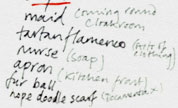 maid (coming round cloakroom)
tartan flamenco (photo of clothing)
nurse (soap)
apron (kitchen front)
fur ball
nepe doodle scarf